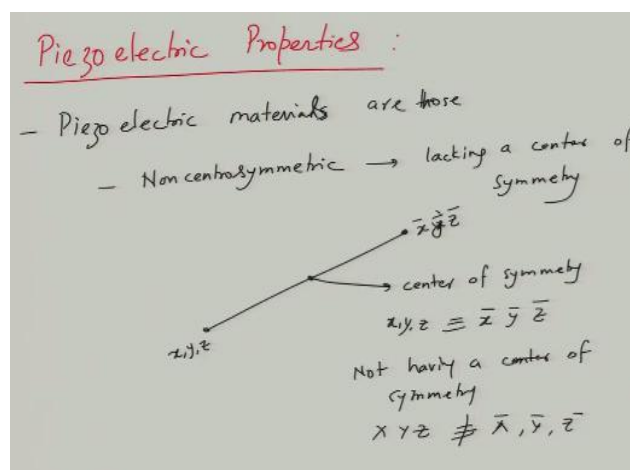 Piezoelectric Properties :
- Piezoelectric materials are those
- Noncentrosymmetric → lacking a center of
symmetry
x̄ ȳ z̄
center of symmetry
x,y,z ≡ x̄ ȳ z̄
x,y,z
Not having a center of
symmetry
X Y Z ≢ x̄, ȳ, z̄